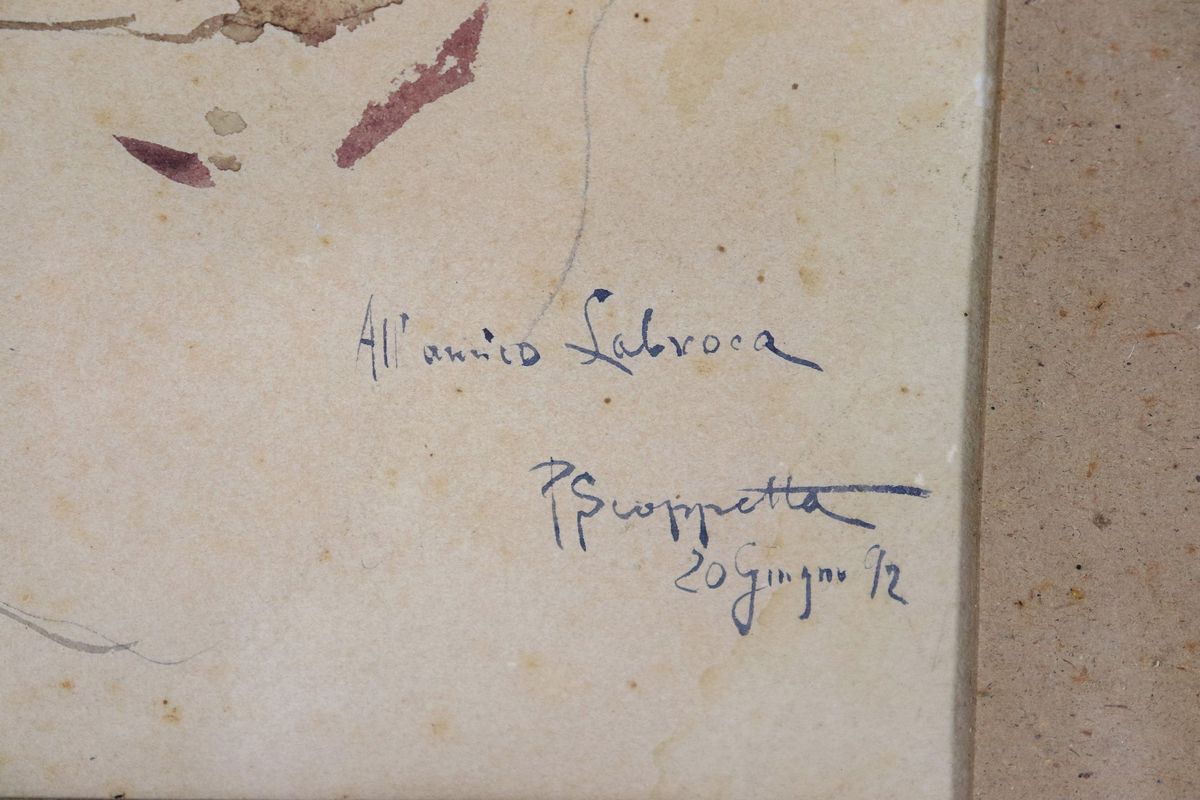 All'amico Labroca
P Scoppetta
20 Giugno 92